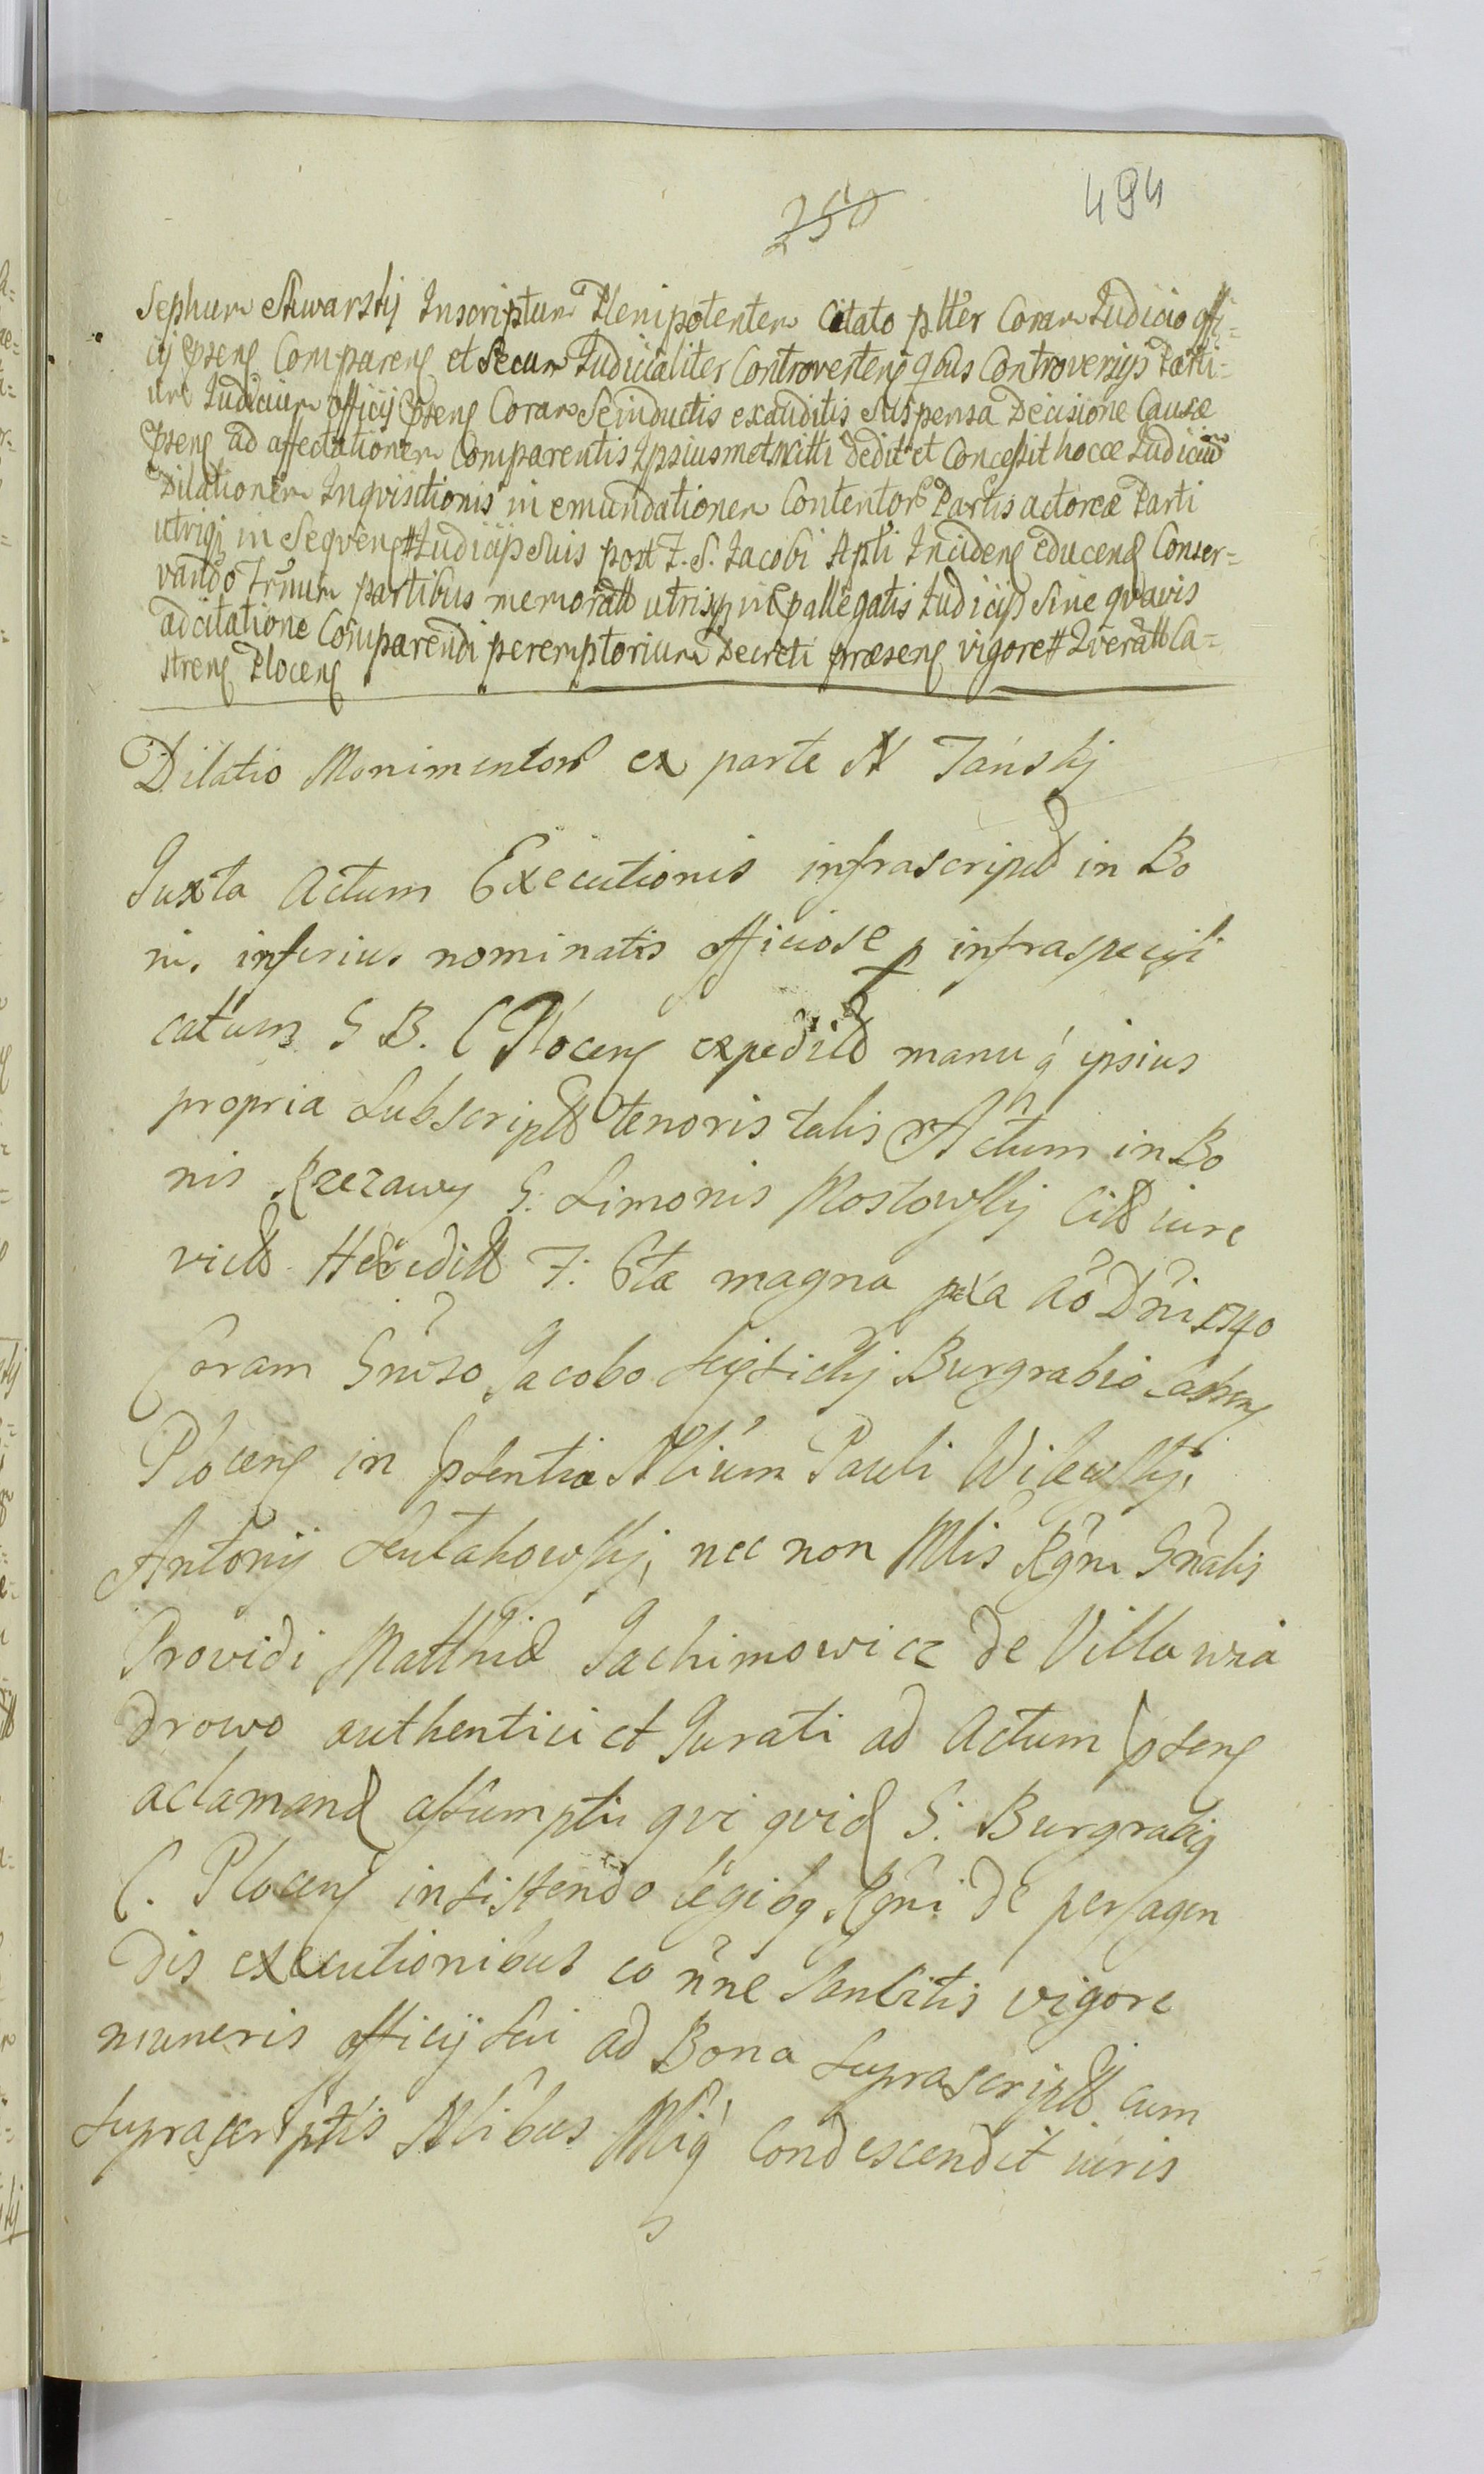 250 494
Sephum Skwarskij Inscriptum Plenipotentem Citato ptter Coram Judicio offi=
cij pseng Compareng et Secum Judicialiter Controverteng qbus Controversijs Parti=
um Judicium officij pseng Coram Se inductis exauditis Suspensa Decisione Causæ
pseng ad affectationem Comparentis Ipsiusmet Dedit et Concessit hocce Judicium
Dilationem Inqvisitionis in emundationem Contentor Partis actoreæ Parti
utriqz in Seqveng Judicijs Suis post F. S. Jacobi Apli Incideng educeng Conser=
vando Trnum partibus memorat utrisqz in pallegatis Judicijs Sine qvavis
adcitatione Comparendi peremptorium Decreti præseng vigore Ca=
streng Ploceng
Dilatio Monimentor ex parte N Tański
Juxta Actum Executionis infrascript in Bo
nis inferius nominatis officiose p infraspecifi
catum G B. C Ploceng expedit manu q ipsius
propria Subscript tenoris talis Actum in Bo
nis Rzezawy G. Simonis Mostowskij Cit iure
vict Heredit F: 6ta magna pxa Ao Dni 1740
Coram Gnoso Jacobo Burgrabio Castreng
Ploceng in psentia Nlium Pauli Wilewskij,
Antonij Kutakowskij, nec non Mlis Rgni Gnalis
Providi Matthiæ Jachimowicz de Villa wzia
drowo authentici et Jurati ad Actum pseng
aclamand assumpti qvi qvid G. Burgrabig
C. Ploceng insistendo legibq Rgni de peragen
dis executionibus eo nne Sancitis vigore
muneris officij Sui ad Bona Suprascript cum
Suprascriptis Nlibus Mliq Condescendit iuris